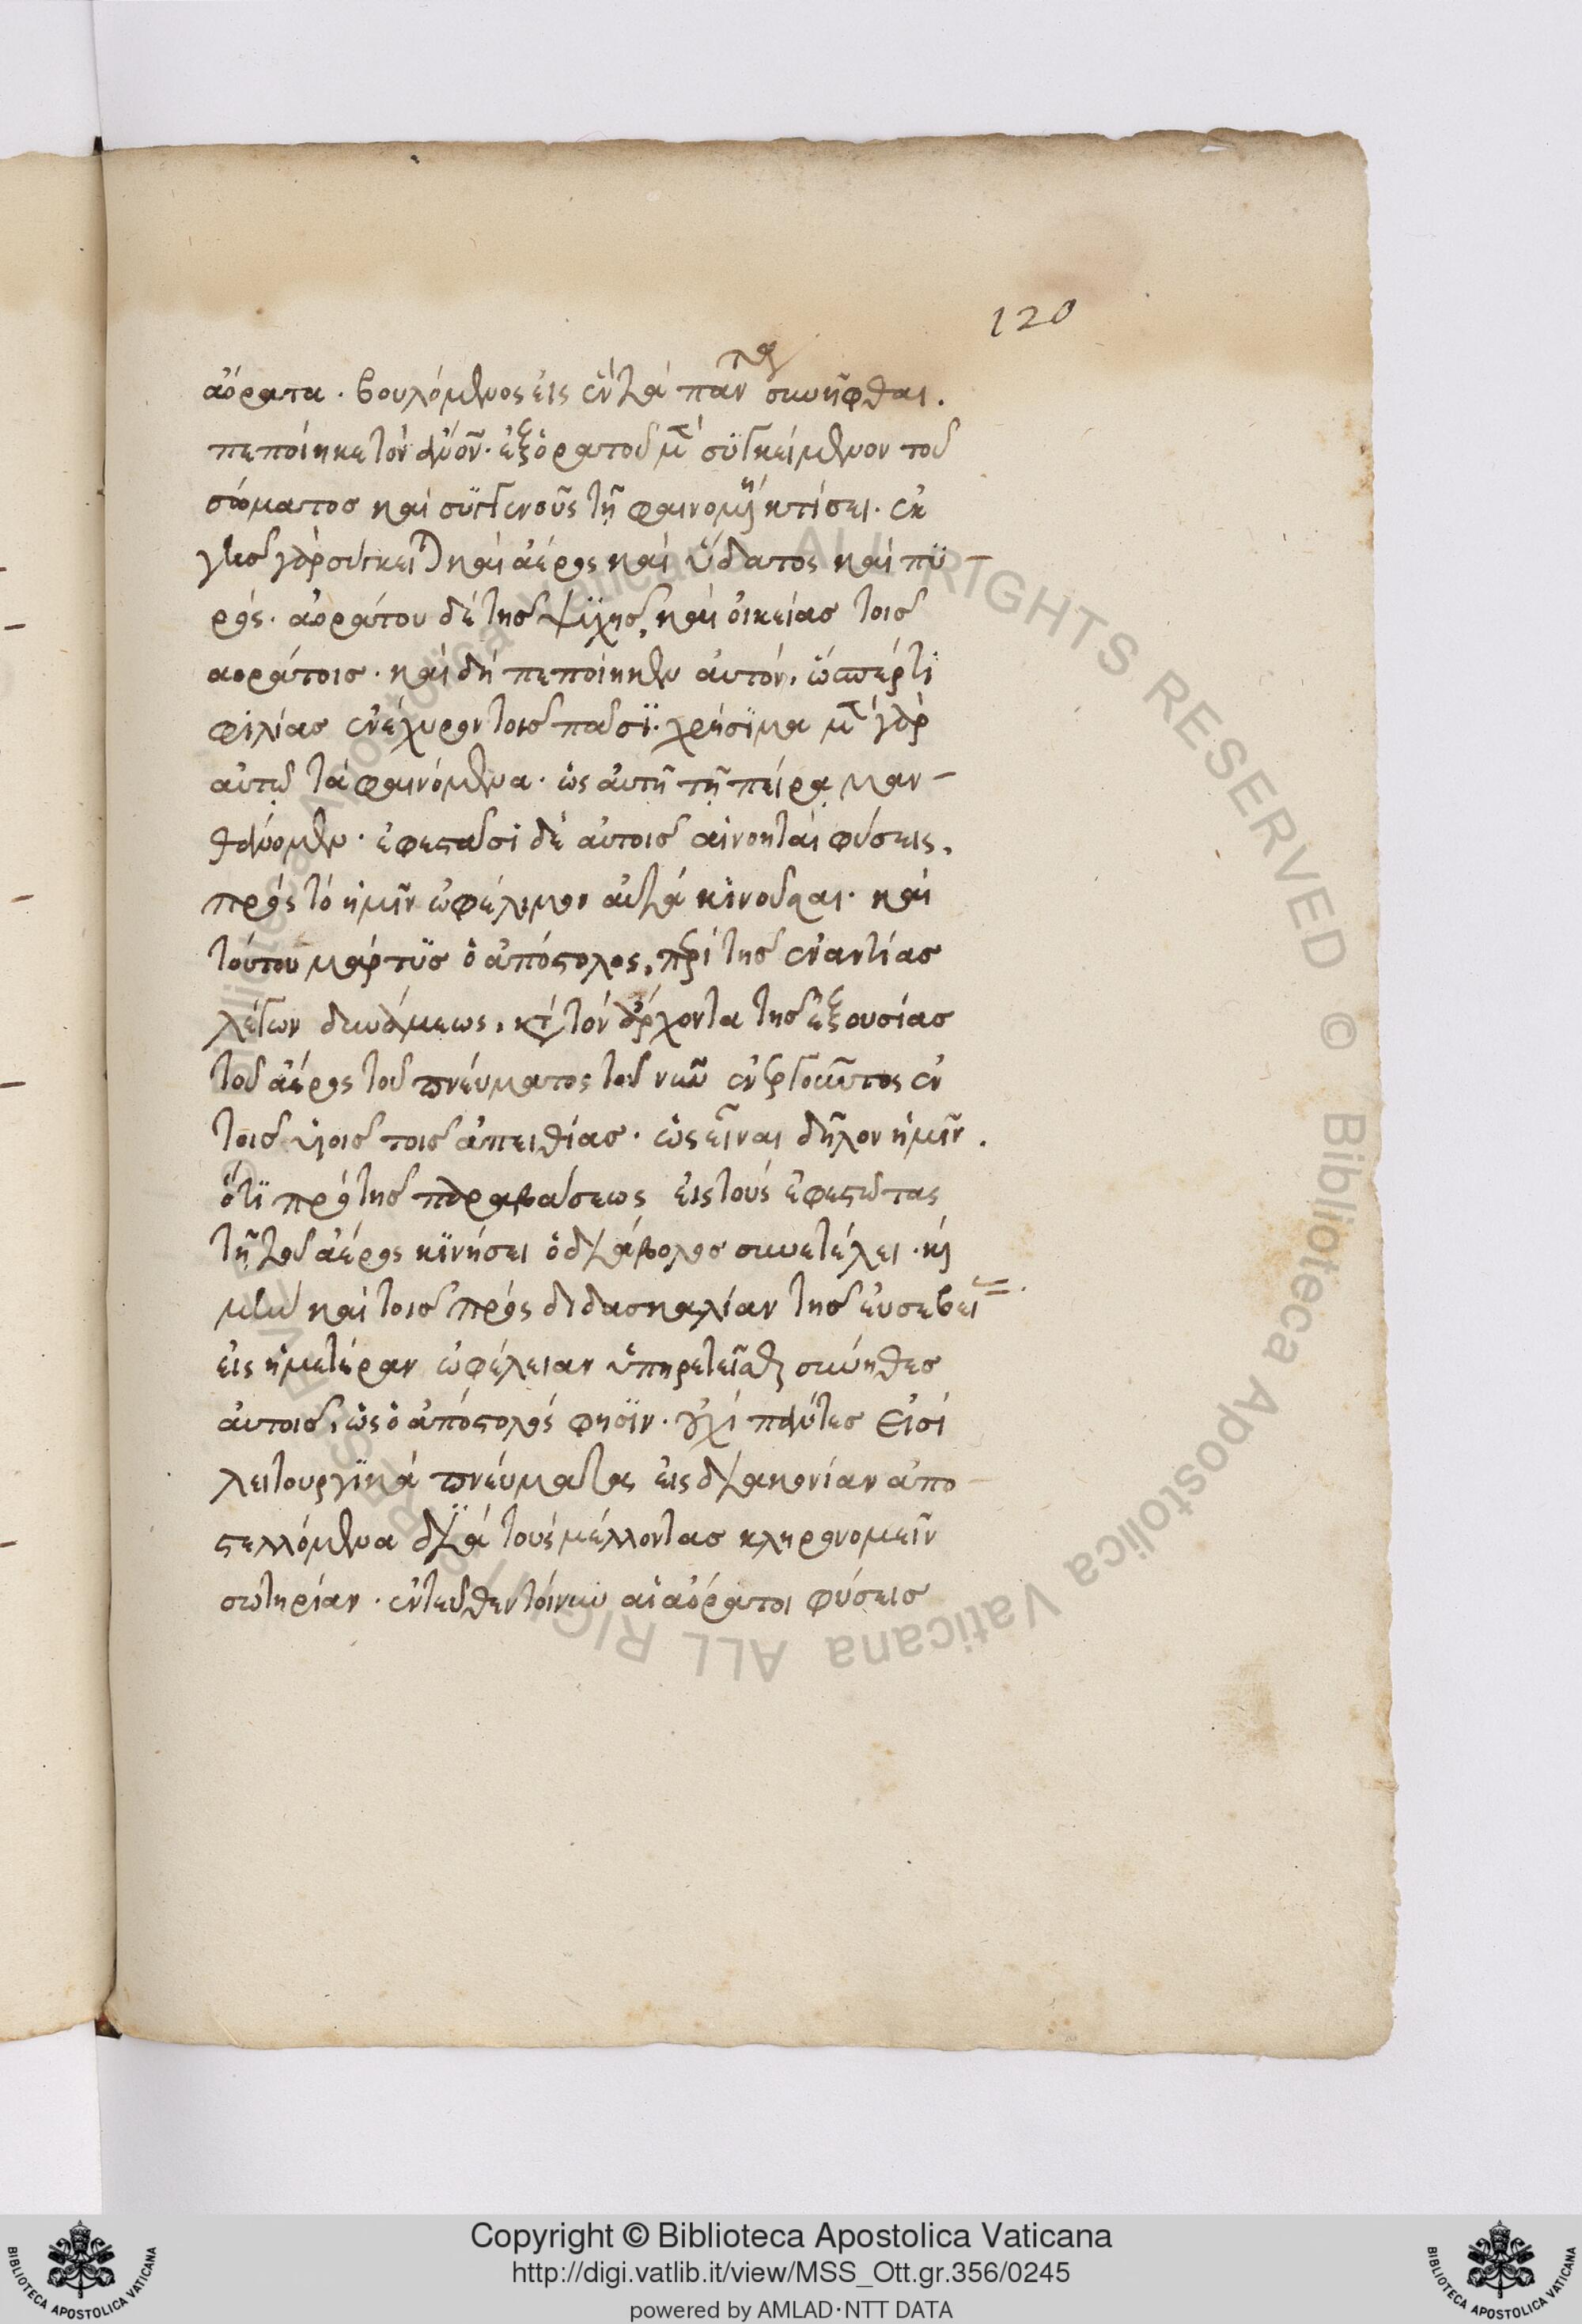 120
ἀόρατα. βουλόμενος εἰς ἓν τὰ πάντα συνῆφθαι.
πεποίηκε τὸν ἀνον. ἐξ ὁρατοῦ μὲν συγκείμενον τοῦ
σώματος καὶ συγγενοῦς τῇ φαινομένῃ κτίσει. ἐκ
γῆς γὰρ σύγκειται καὶ ἀέρος καὶ ὕδατος καὶ πυ–
ρός. ἀοράτου δὲ τῆς ψυχῆς, καὶ οἰκείας τοῖς
ἀοράτοις. καὶ δὴ πεποίηκεν αὐτὸν, ὥσπέρ τι
φιλίας ἐνέχυρον τοῖς πᾶσι. χρήσιμα μὲν γὰρ
αὐτῷ τὰ φαινόμενα. ὡς αὐτῇ τῇ πείρᾳ μαν–
θάνομεν. ἐφεστᾶσι δὲ αὐτοῖς αἱ νοηταὶ φύσεις,
πρὸς τὸ ἡμῖν ὠφέλιμον αὐτὰ κινοῦσαι. καὶ
τούτου μάρτυς ὁ ἀπόστολος, περὶ τῆς ἐναντίας
λέγων δυνάμεως, κατὰ τὸν ἄρχοντα τῆς ἐξουσίας
τοῦ ἀέρος τοῦ πνεύματος τοῦ νῦν ἐνεργοῦντος ἐν
τοῖς υἱοῖς τοῖς ἀπειθίας. ὡς εἶναι δῆλον ἡμῖν.
ὅτι πρὸ τῆς παραβάσεως εἰς τοὺς ἐφεστῶτας
τῇ τοῦ ἀέρος κινήσει ὁ διάβολος συνετέλει. καὶ
μὴν καὶ τοῖς πρὸς διδασκαλίαν τῆς εὐσεβεί
εἰς ἡμετέραν ὠφέλειαν ὑπηρετεῖσθαι σύνηθες
αὐτοῖς, ὡς ὁ ἀπόστολός φησιν. οὐχὶ πάντες εἰσὶ
λειτουργικὰ πνεύματα εἰς διακονίαν ἀπο–
στελλόμενα διὰ τοὺς μέλλοντας κληρονομεῖν
σωτηρίαν. ἐντεῦθεν τοίνυν αἱ ἀόρατοι φύσεις
Copyright © Biblioteca Apostolica Vaticana
http://digi.vatlib.it/view/MSS_Ott.gr.356/0245
powered by AMLAD·NTT DATA